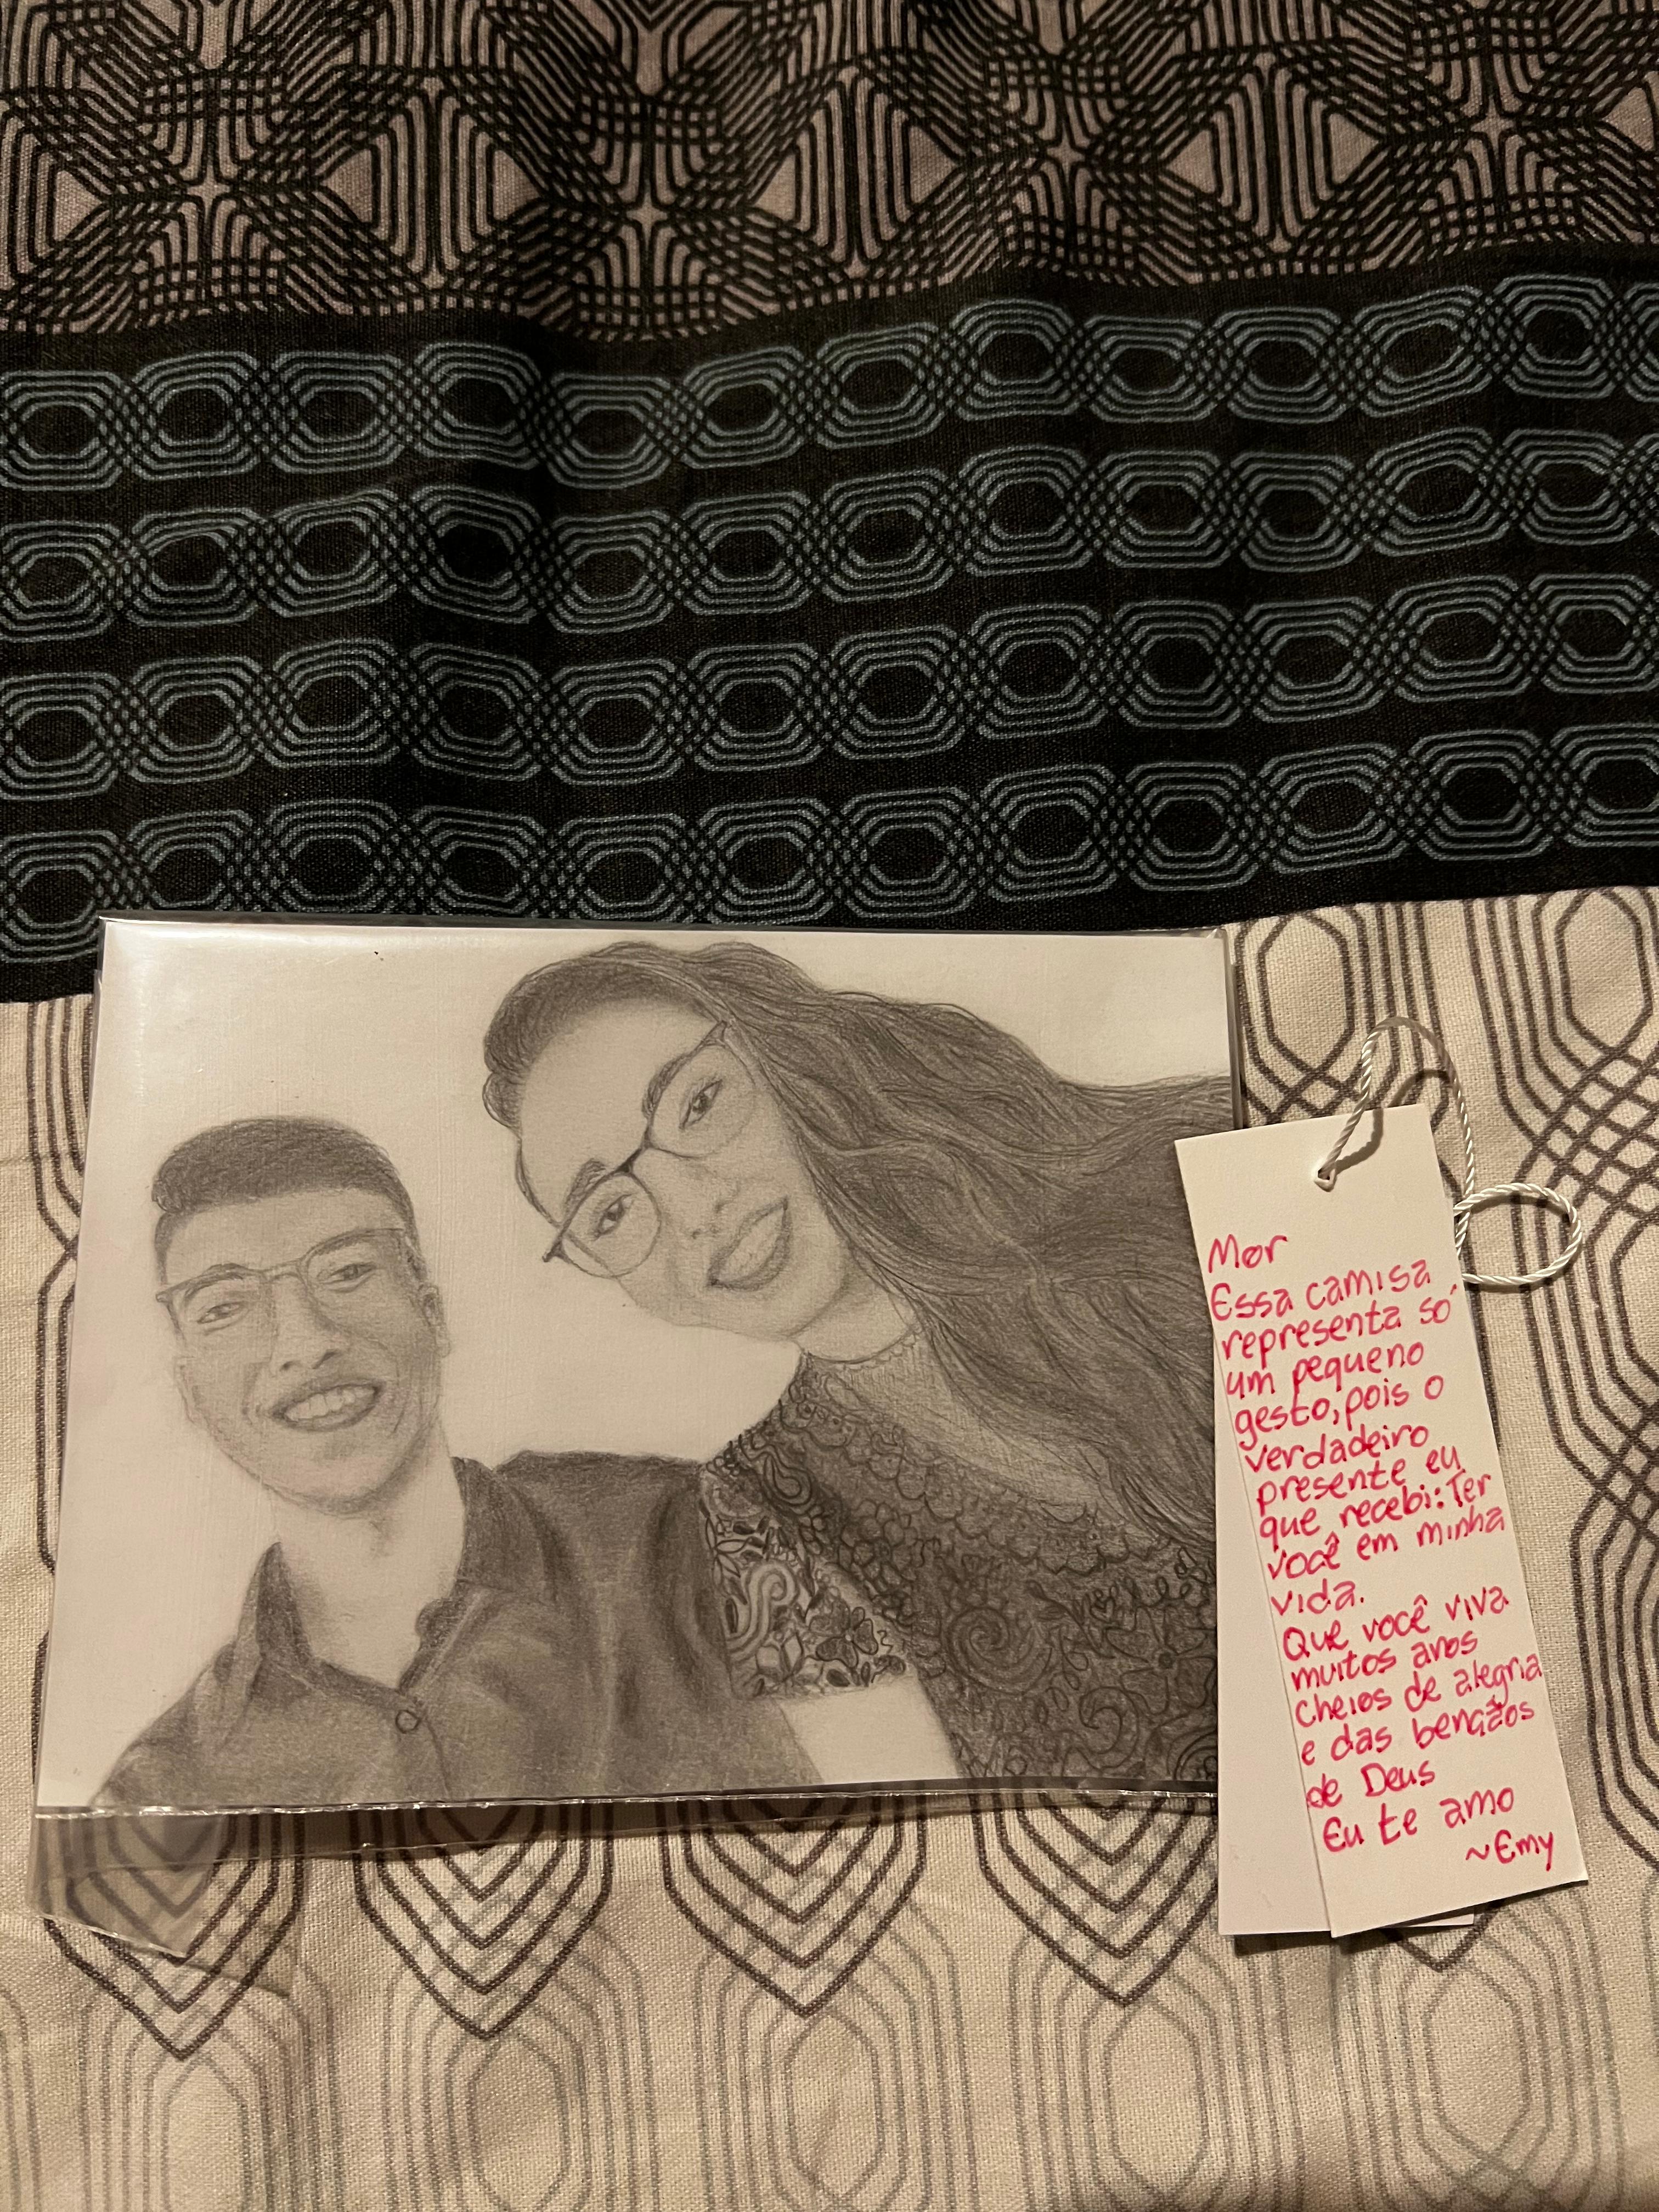 Mor
Essa camisa
representa só
um pequeno
gesto, pois o
verdadeiro
presente eu
que recebi: Ter
você em minha
vida.
Que você viva
muitos anos
cheios de alegria
e das bençãos
de Deus
Eu te amo
~Emy